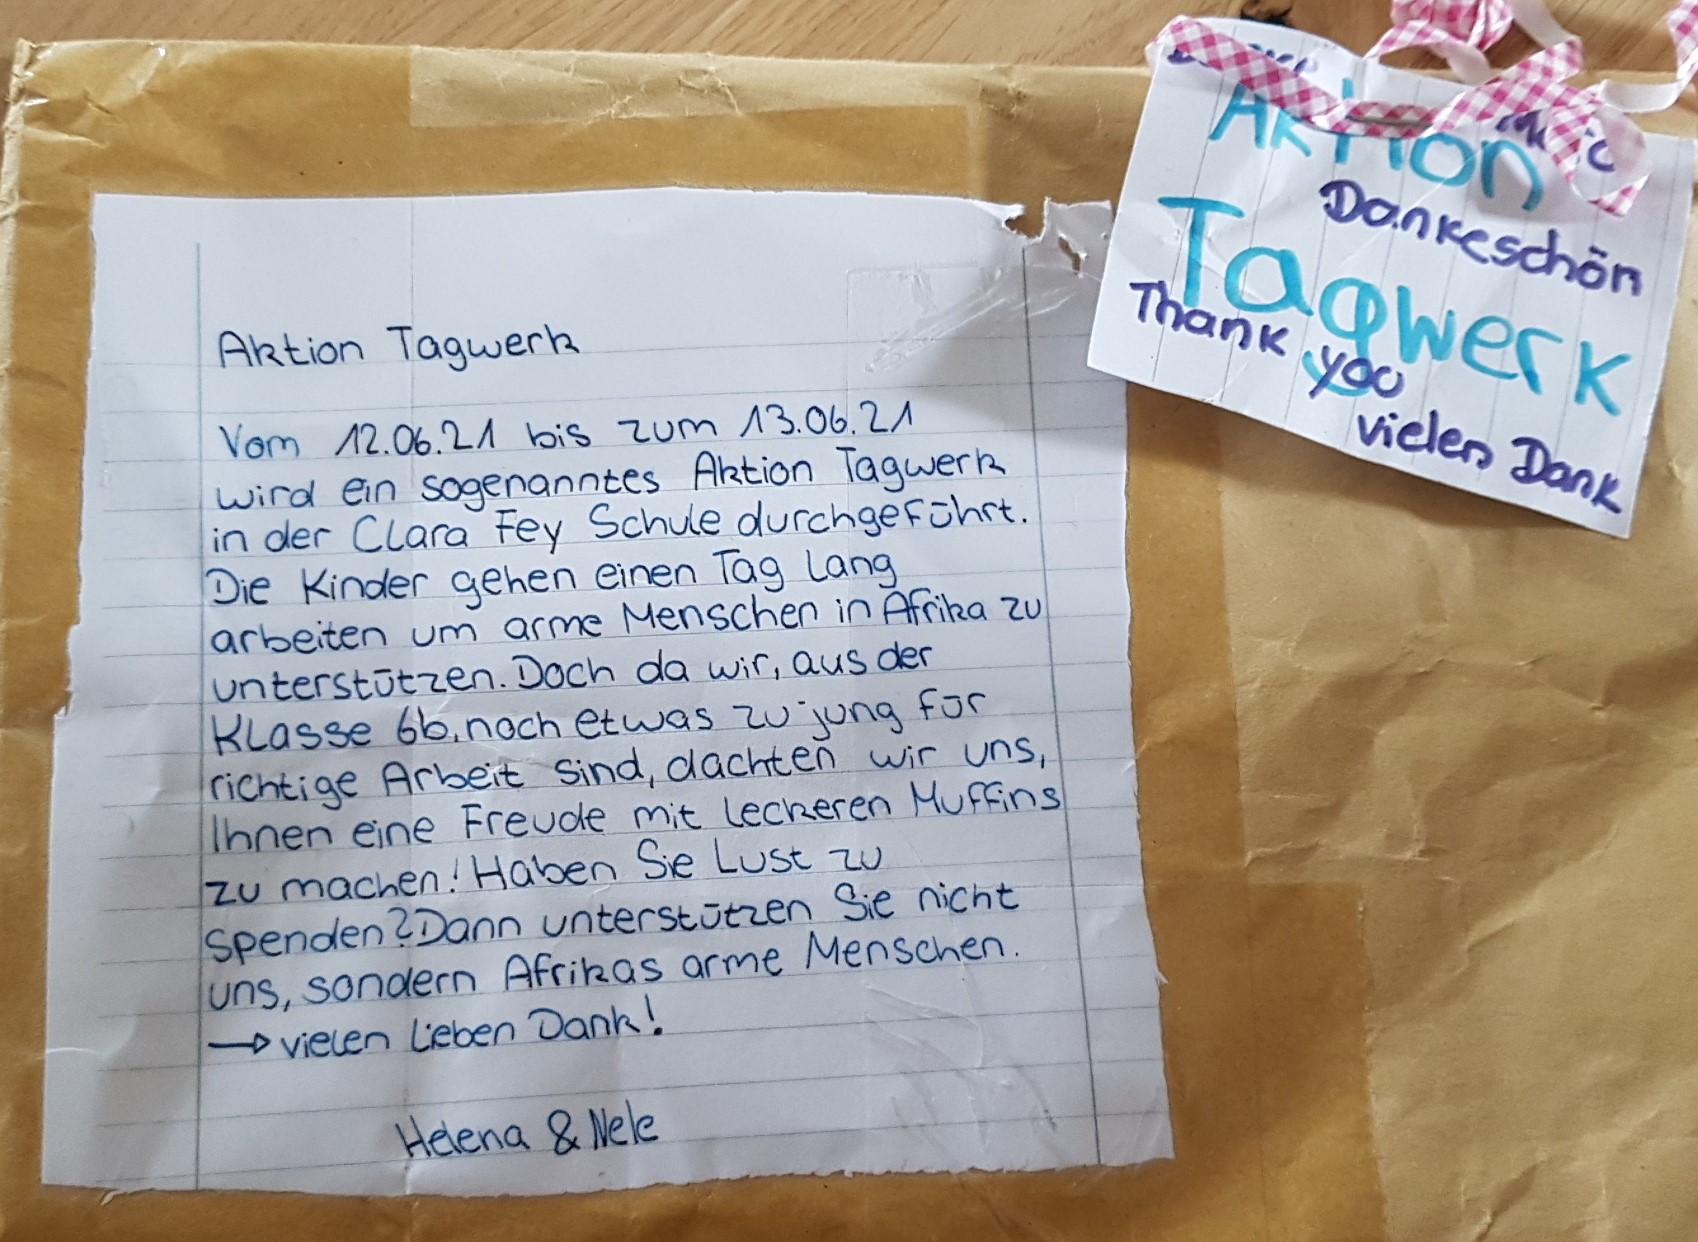 Aktion Tagwerk
Vom 12.06.21 bis zum 13.06.21
wird ein sogenanntes Aktion Tagwerk
in der Clara Fey Schule durchgeführt.
Die Kinder gehen einen Tag lang
arbeiten um arme Menschen in Afrika zu
unterstützen. Doch da wir, aus der
Klasse 6b, noch etwas zu jung für
richtige Arbeit sind, dachten wir uns,
Ihnen eine Freude mit leckeren Muffins
zu machen! Haben Sie Lust zu
spenden? Dann unterstützen Sie nicht
uns, sondern Afrikas arme Menschen.
→ vielen lieben Dank!
Helena & Nele
Aktion
Dankeschön
Tagwerk
Thank you
vielen Dank